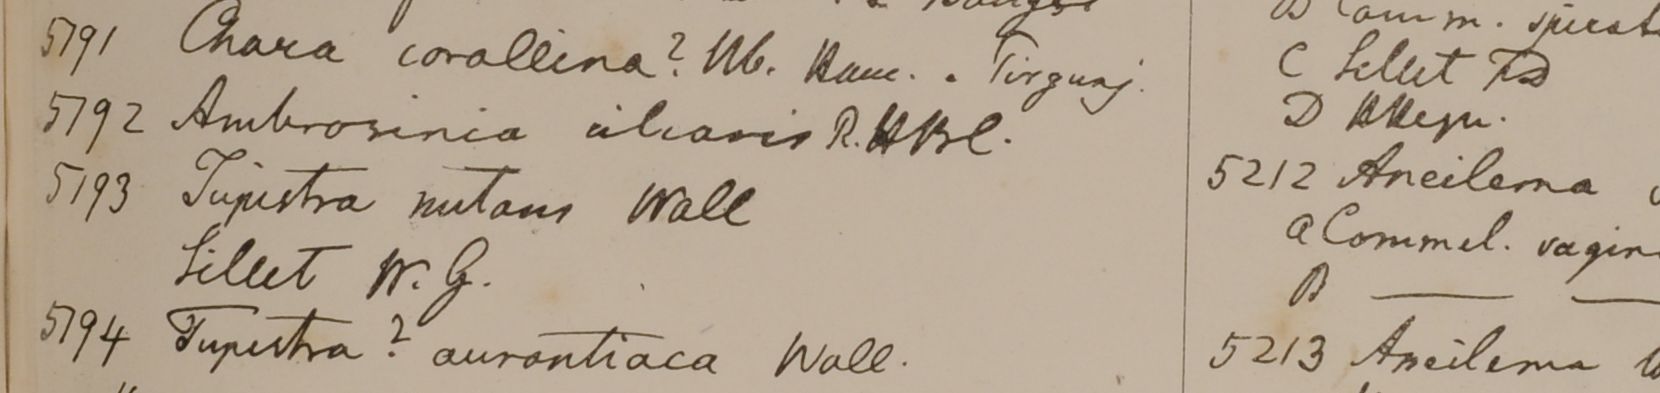 5191 Chara corallina? Hb. Ham. . Tirgunj.
5192 Ambrosinia ciliaris R. HBC.
5193 Tupistra nutans Wall
Sillet W. G.
5194 Tupistra? aurantiaca Wall.
B Comm.
C Sillet FD
D
5212 Aneilema
a Commel. vagin
B — —
5213 Aneilema